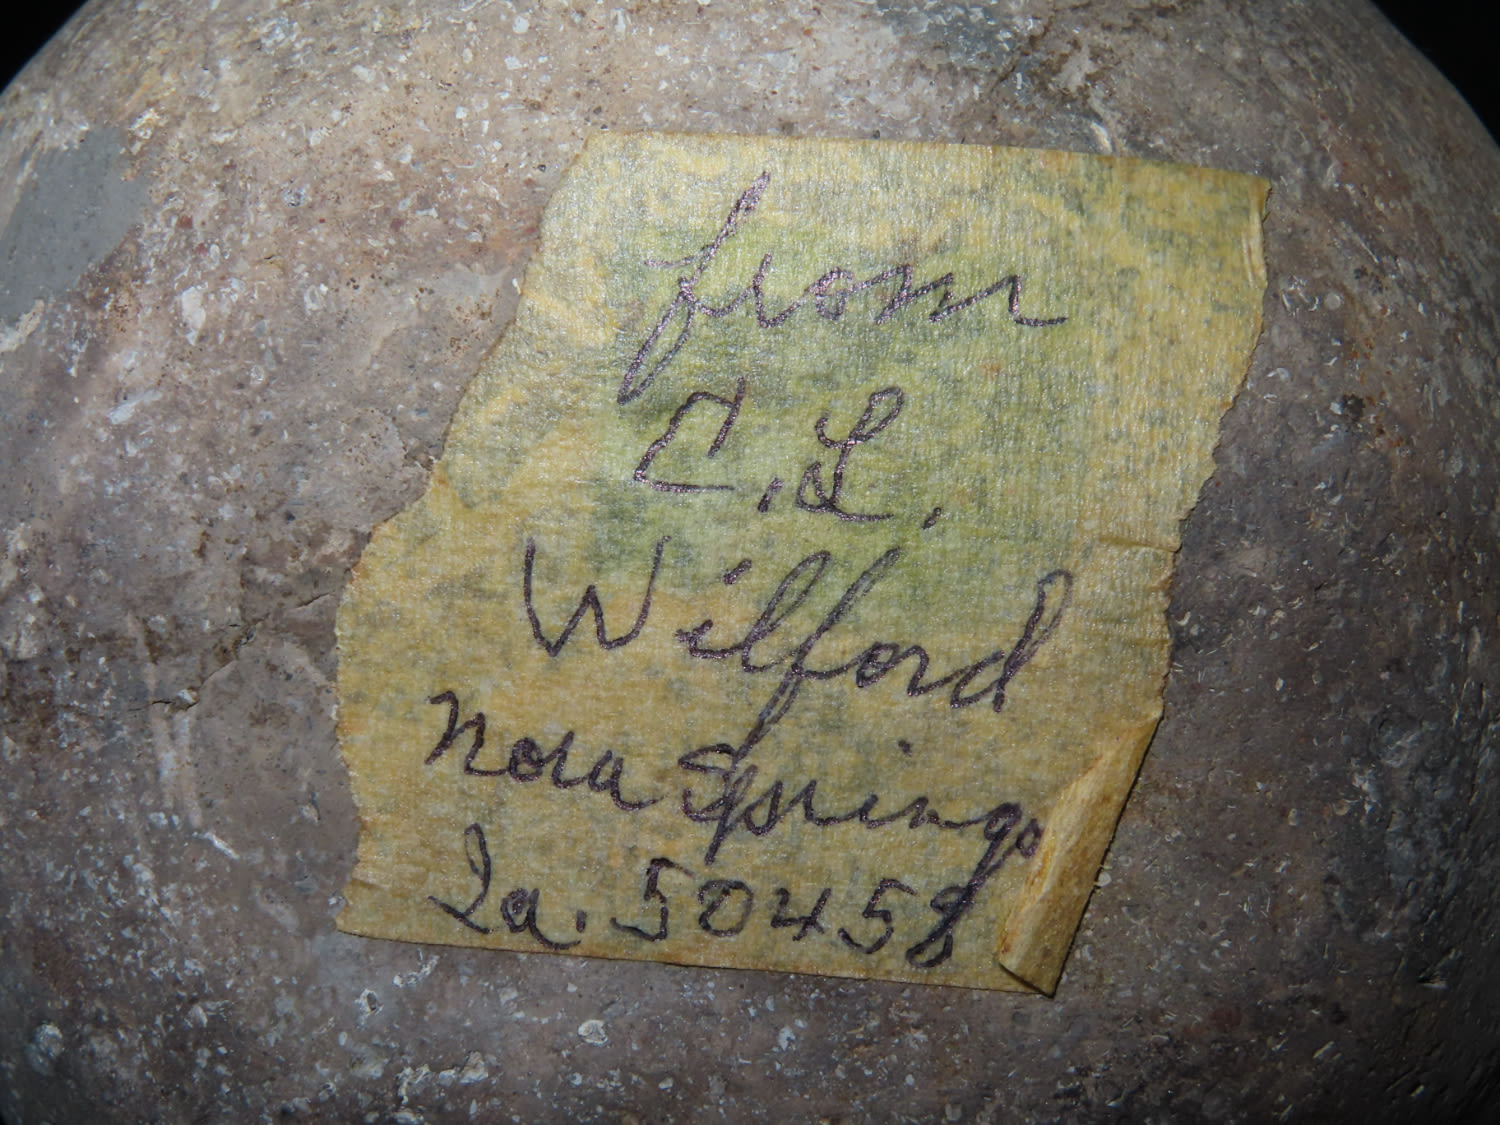 from
C. L.
Wilford
Nora Springs
Ia. 50458